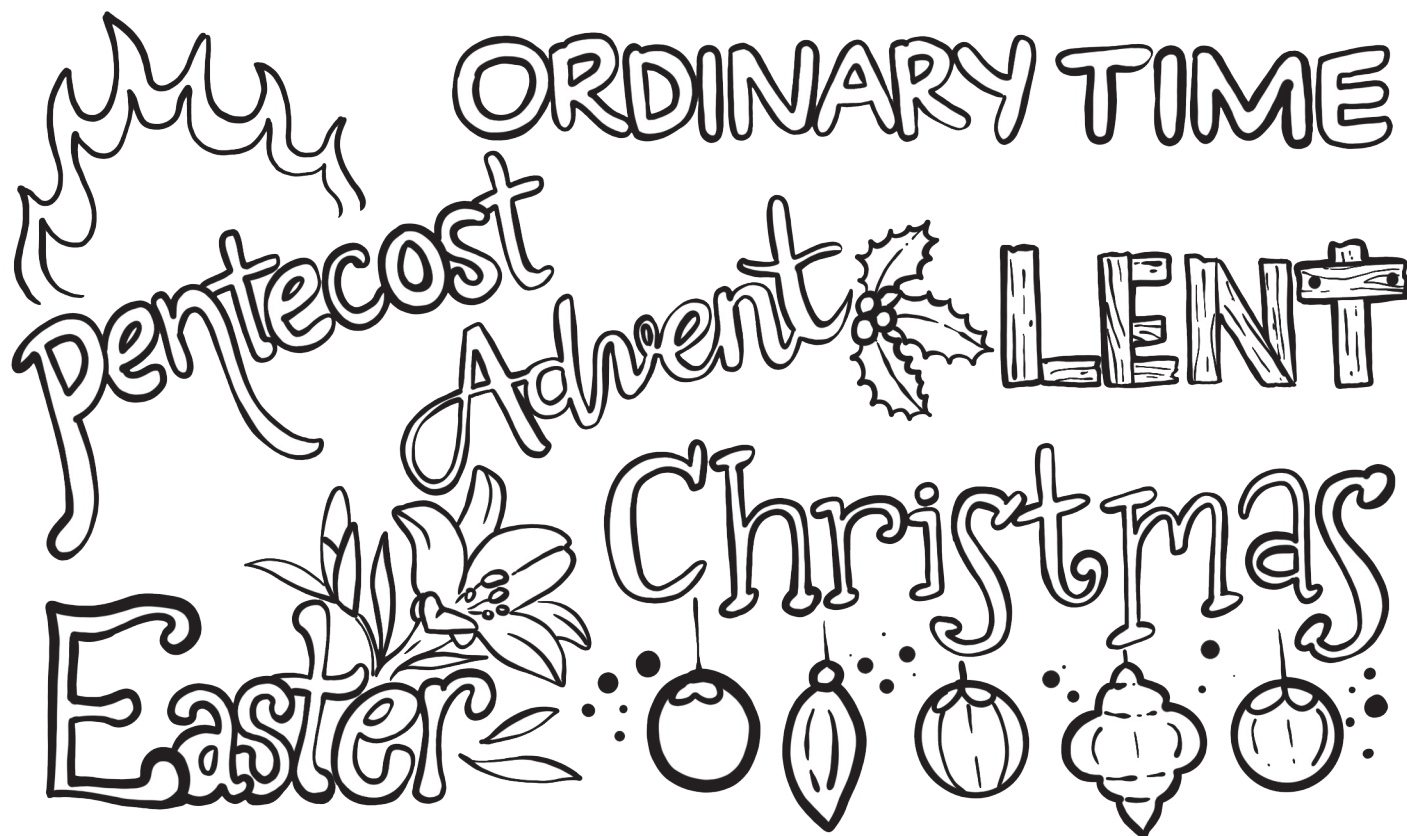 ORDINARY TIME
Pentecost
Advent
LENT
Christmas
Easter